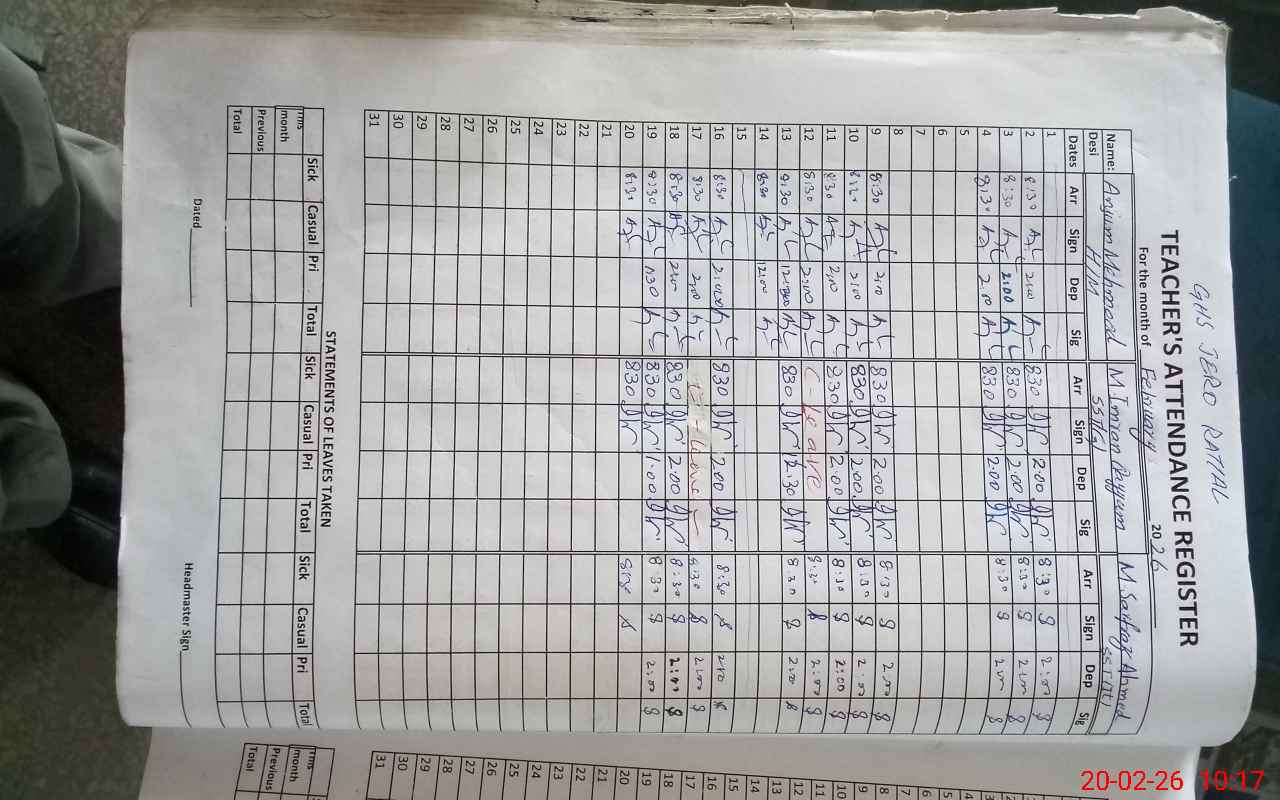 GHS JERO RATIAL
TEACHER'S ATTENDANCE REGISTER
For the month of February 2026
Name: Anjum Mehmood M Imran Qayyum M. Sarfraz Ahmed
Desi H/M
Dates Arr Sign Dep Sig Arr Sign Dep Sig Arr Sign Dep Sig
1
2 8:30 2:00 830 2:00 8:30 2:00
3 8:30 2:00 830 2:00 8:30 2:00
4 8:30 2:00 830 2:00 8:30 2:00
5
6
7
8
9 8:30 2:00 830 2:00 8:30 2:00
10 8:30 2:00 830 2:00 8:30 2:00
11 8:30 2:00 830 2:00 8:30 2:00
12 8:30 2:00 C - Leave 8:30 2:00
13 8:30 830 12:30 8:30 2:00
14 8:30 12:00
15
16 8:30 2:00 830 2:00 8:30 2:00
17 8:30 2:00 Leave 8:30 2:00
18 8:30 2:00 830 2:00 8:30 2:00
19 8:30 1:30 830 1:00 8:30 2:00
20 8:30 830
21
22
23
24
25
26
27
28
29
30
31
STATEMENTS OF LEAVES TAKEN
Sick Casual Pri Total Sick Casual Pri Total Sick Casual Pri Total
This month
Previous
Total
Dated Headmaster Sign
8
9
10
11
12
13
14
15
16
17
18
19
20
21
22
23
24
25
26
27
28
29
30
31
This month
Previous
Total
20-02-26 10:17